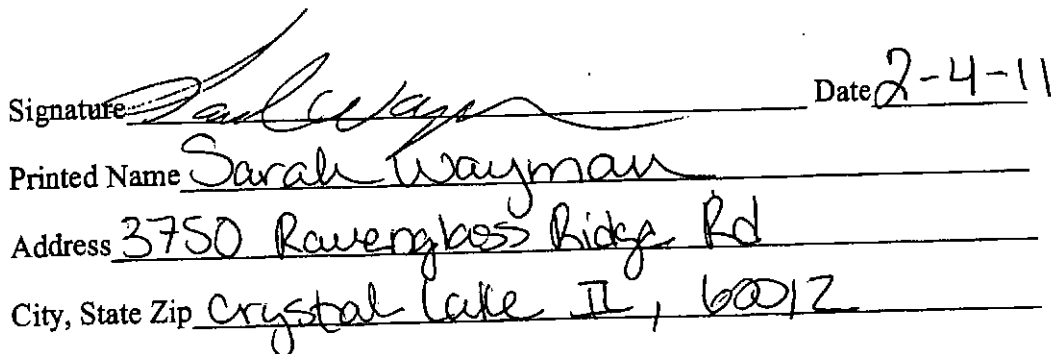 Signature Sarah Wayman Date 2-4-11
Printed Name Sarah Wayman
Address 3750 Ravenglass Ridge Rd
City, State Zip Crystal Lake IL, 60012